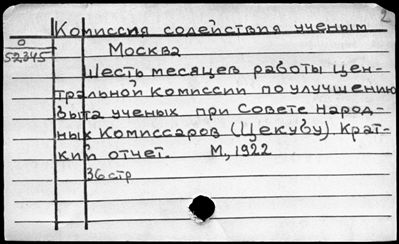 2
Комиссия содействия ученым
0
52345
Москва
Шесть месяцев работы Цен-
тральной Комиссии по улучшению
быта ученых при Совете Народ-
ных Комиссаров (Цекубу) Крат-
кий отчет. М, 1922
36 стр